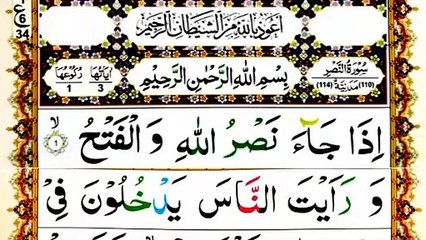 اَعُوْذُ بِاللّٰهِ مِنَ الشَّيْطَانِ الرَّجِيْمِ
سُوْرَةُ النَّصْرِ
(110) مَدَنِيَّةٌ (114)
بِسْمِ اللّٰهِ الرَّحْمٰنِ الرَّحِيْمِ
اٰيَاتُهَا 3
رُكُوْعُهَا 1
ع 6 34
اِذَا جَآءَ نَصْرُ اللّٰهِ وَ الْفَتْحُ ۙ ١
وَ رَاَيْتَ النَّاسَ يَدْخُلُوْنَ فِيْ